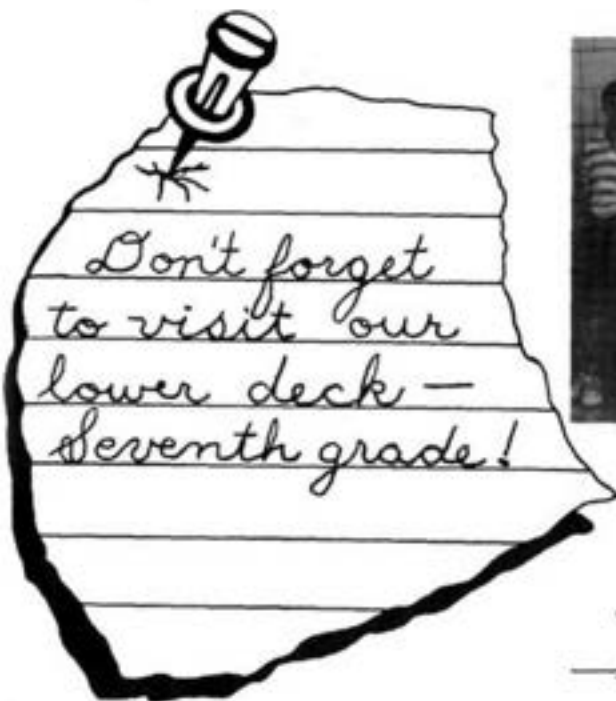 Don't forget
to visit our
lower deck —
Seventh grade!